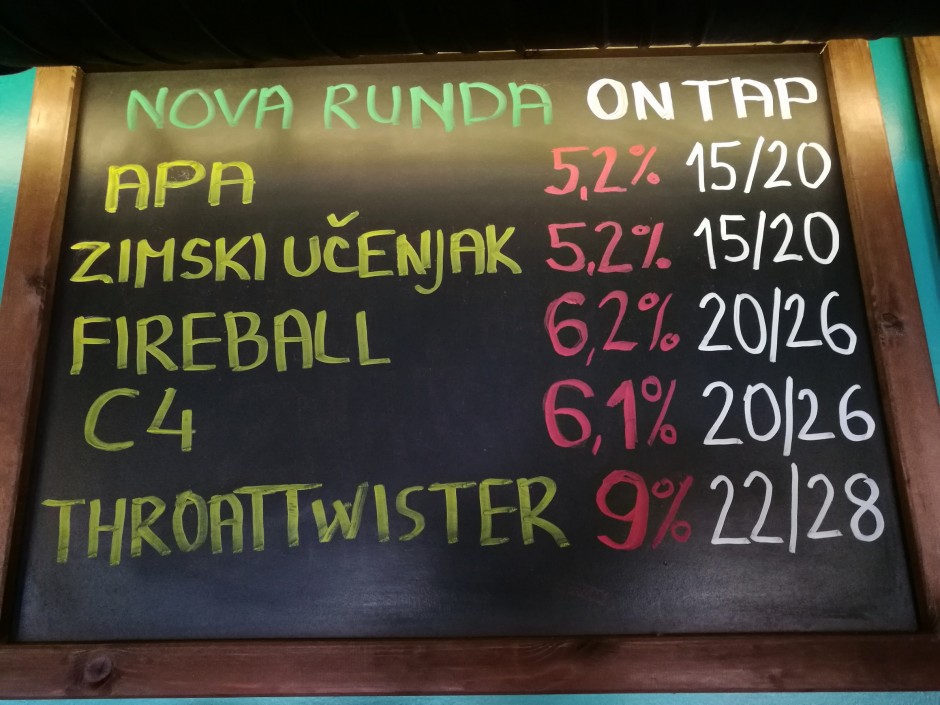 NOVA RUNDA ON TAP
APA 5,2% 15/20
ZIMSKI UČENJAK 5,2% 15/20
FIREBALL 6,2% 20/26
C4 6,1% 20/26
THROATTWISTER 9% 22/28